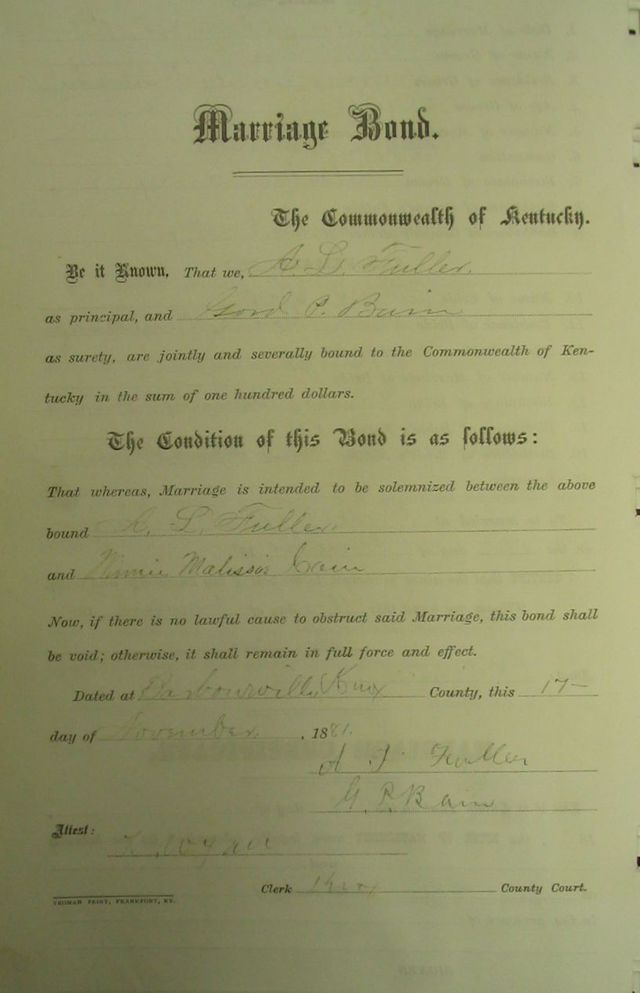 Marriage Bond.
The Commonwealth of Kentucky.
Be it Known, That we, A. L. Fuller
as principal, and P. Bain
as surety, are jointly and severally bound to the Commonwealth of Ken-
tucky in the sum of one hundred dollars.
The Condition of this Bond is as follows:
That whereas, Marriage is intended to be solemnized between the above
bound A. L. Fuller
and Malissa
Now, if there is no lawful cause to obstruct said Marriage, this bond shall
be void; otherwise, it shall remain in full force and effect.
Dated at Barbourville Knox County, this 17-
day of November, 1881.
Fuller
G. P. Bain
Attest:
Clerk Knox County Court.
YEOMAN PRINT, FRANKFORT, KY.